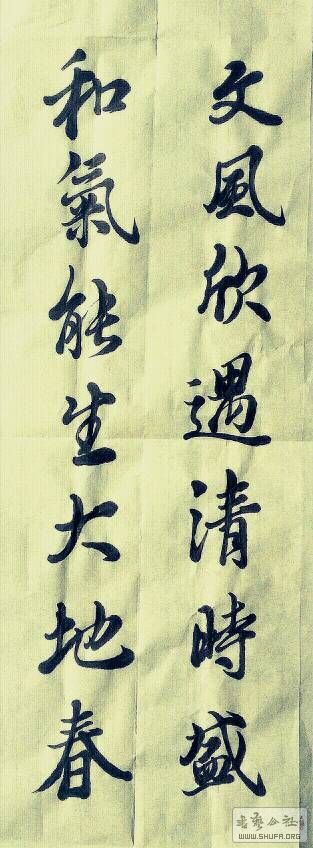 文風欣遇清時盛
和氣能生大地春
書藝公社
WWW.SHUFA.ORG